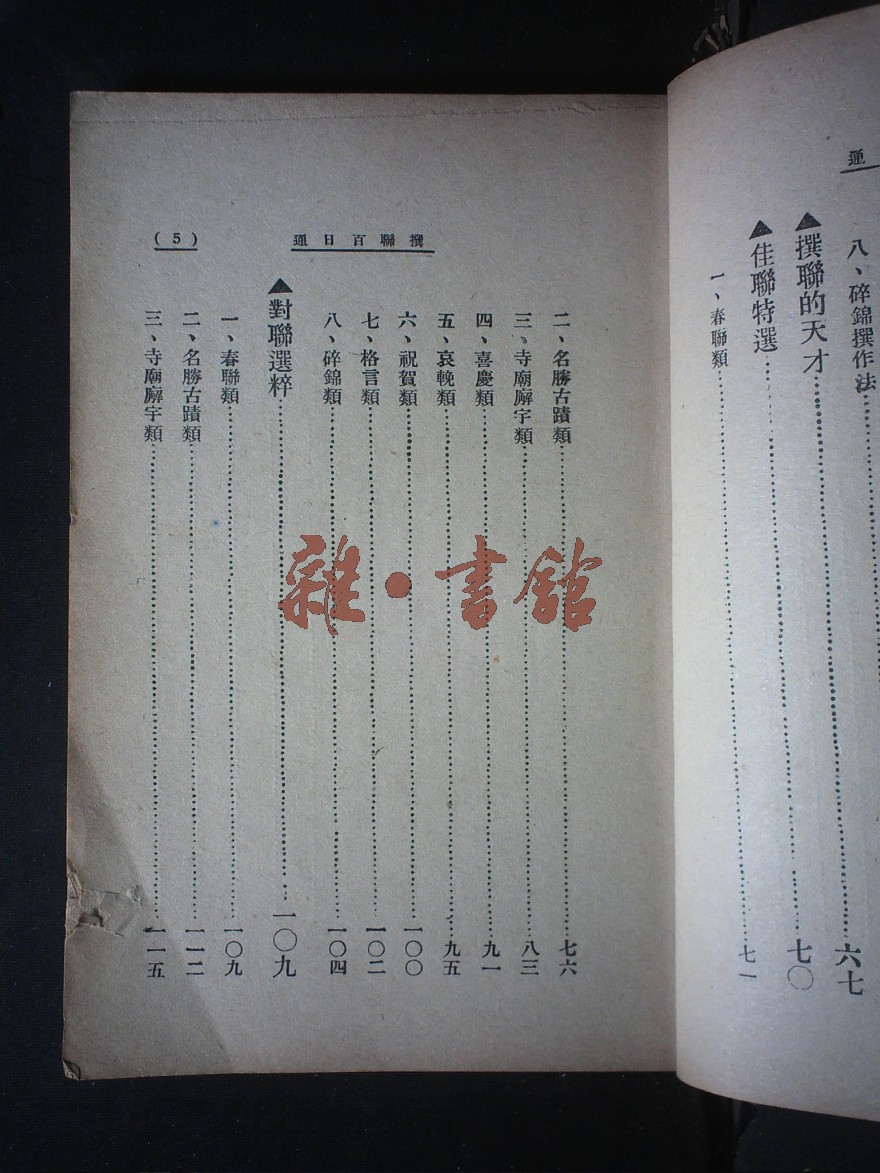 通
八、碎錦撰作法……
▲撰聯的天才……六七
▲佳聯特選……七〇
一、春聯類……七一
撰聯百日通
(5)
二、名勝古蹟類……七六
三、寺廟廨宇類……八三
四、喜慶類……九一
五、哀輓類……九五
六、祝賀類……一〇〇
七、格言類……一〇二
八、碎錦類……一〇四
▲對聯選粹……一〇九
一、春聯類……一〇九
二、名勝古蹟類……一一二
三、寺廟廨宇類……一一五
雜·書館